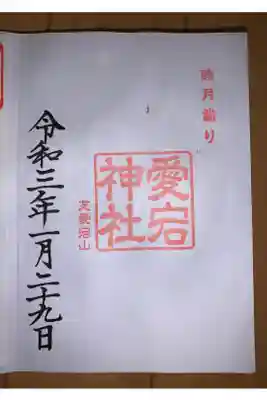 睦月詣り
愛宕
神社
愛宕山
令和三年一月二十九日